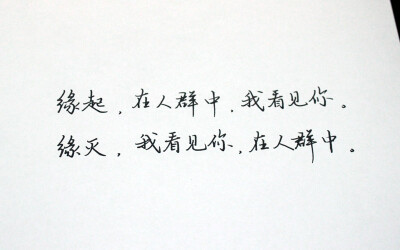 缘起，在人群中，我看见你。
缘灭，我看见你，在人群中。